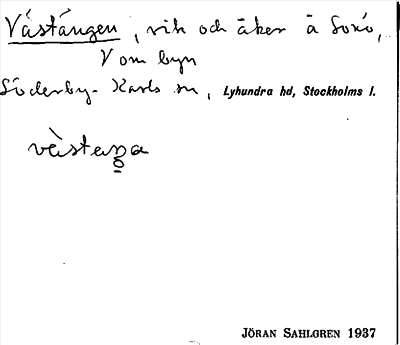 Västängen, vik och åker å Sonö,
V om byn
Söderby-Karls sn, Lyhundra hd, Stockholms l.
vàstaṉa
JÖRAN SAHLGREN 1937